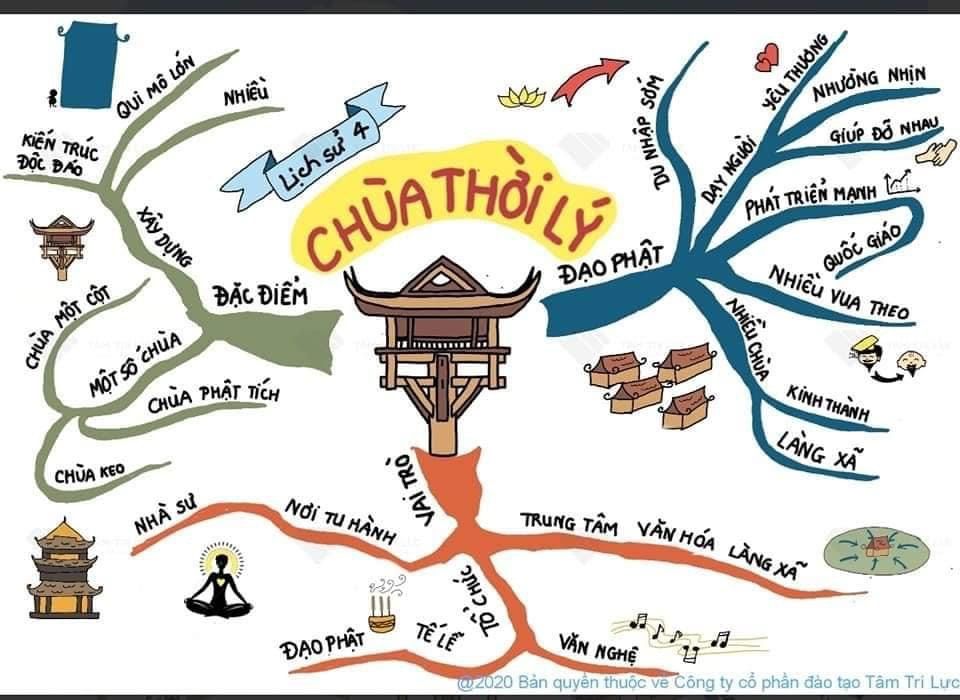 Lịch sử 4
CHÙA THỜI LÝ
ĐẠO PHẬT
DU NHẬP SỚM
DẠY NGƯỜI
YÊU THƯƠNG
NHƯỜNG NHỊN
GIÚP ĐỠ NHAU
PHÁT TRIỂN MẠNH
QUỐC GIÁO
NHIỀU VUA THEO
NHIỀU CHÙA
KINH THÀNH
LÀNG XÃ
VAI TRÒ
TRUNG TÂM VĂN HÓA LÀNG XÃ
TỔ CHỨC
VĂN NGHỆ
TẾ LỄ
ĐẠO PHẬT
NƠI TU HÀNH
NHÀ SƯ
ĐẶC ĐIỂM
MỘT SỐ CHÙA
CHÙA KEO
CHÙA PHẬT TÍCH
CHÙA MỘT CỘT
XÂY DỰNG
KIẾN TRÚC
ĐỘC ĐÁO
QUI MÔ LỚN
NHIỀU
@2020 Bản quyền thuộc về Công ty cổ phần đào tạo Tâm Trí Lực